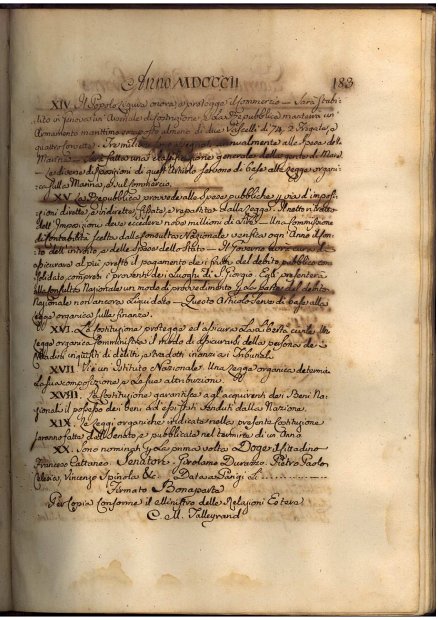 Anno MDCCCII 183
XIV. Il Popolo Ligure onora e protegge il Commercio — Sarà stabi-
lito in Genova un Arsenale di Costruzione. La Repubblica manterrà un
Armamento marittimo composto almeno di due Vascelli di 74, 2 Fregate, e
quattro Corvette. annualmente alle Spese della
Marina. Sarà fatta una classificazione generale della gente di Mare
Le disposizioni di quest'Articolo servono di base alla Legge organi-
ca sulla Marina, e sul Commercio.
XV. La Repubblica provvede alle Spese pubbliche per via d'impo-
sizioni dirette, e indirette fissate, e repartite dalla Legge. Il netto
dell'Imposizioni deve eccedere nove milioni di Lire — Una Commissione
di Contabilità scelta dalla Consulta Nazionale verifica ogni Anno il Con-
to dell'introito, e delle Spese dello Stato — Il Governo
assicurare al più presto il pagamento dei frutti del debito pubblico con-
solidato, compresi i proventi dei Luoghi di S. Giorgio. Egli presenterà
alla Consulta Nazionale un modo di provvedimento per la parte del debito
Nazionale non ancora liquidato — Questo Articolo serve di base alla
Legge organica sulla finanza.
XVI. La Costituzione protegge ed assicura la Libertà civile. Una
Legge organica somministra il modo di assicurarsi della persona de'
Cittadini di delitti, e tradotti inanzi a' Tribunali
XVII. Vi è un Istituto Nazionale. Una Legge organica determi-
na la sua composizione, e la sue attribuzioni.
XVIII. La Costituzione garantisce agli acquirenti dei Beni Na-
zionali il possesso dei beni ad essi stati venduti dalla Nazione.
XIX. Le Leggi organiche indicate nella presente Costituzione
saranno fatte dal Senato, e pubblicate nel termine di un Anno
XX. Sono nominati per la prima volta Doge il Cittadino
Francesco Cattaneo. Senatori. Girolamo Durazzo. Pietro Paolo
Celesia, Vincenzo Spinola &c. Data a Parigi li
Firmato Bonaparte
Per Copia Conforme il Ministro delle Relazioni Estere
C. M. Talleyrand